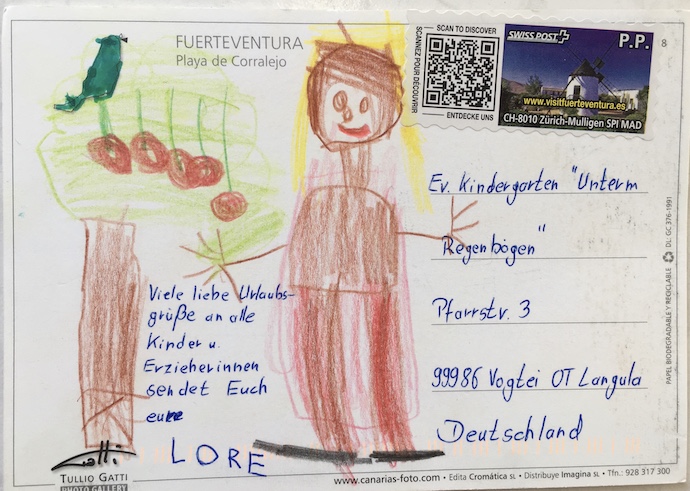 FUERTEVENTURA
Playa de Corralejo
SCAN TO DISCOVER
SCANNEZ POUR DÉCOUVRIR
ENTDECKE UNS
SWISS POST
P.P.
www.visitfuerteventura.es
CH-8010 Zürich-Mulligen SPI MAD
8
Viele liebe Urlaubs-
grüße an alle
Kinder u.
Erzieherinnen
sendet Euch
eure
LORE
Ev. Kindergarten "Unterm
Regenbogen"
Pfarrstr. 3
99986 Vogtei OT Langula
Deutschland
PAPEL BIODEGRADABLE Y RECICLABLE DL GC 376-1991
TULLIO GATTI
PHOTO GALLERY
www.canarias-foto.com • Edita Cromática sl. • Distribuye Imagina sl. • Tfn.: 928 317 300